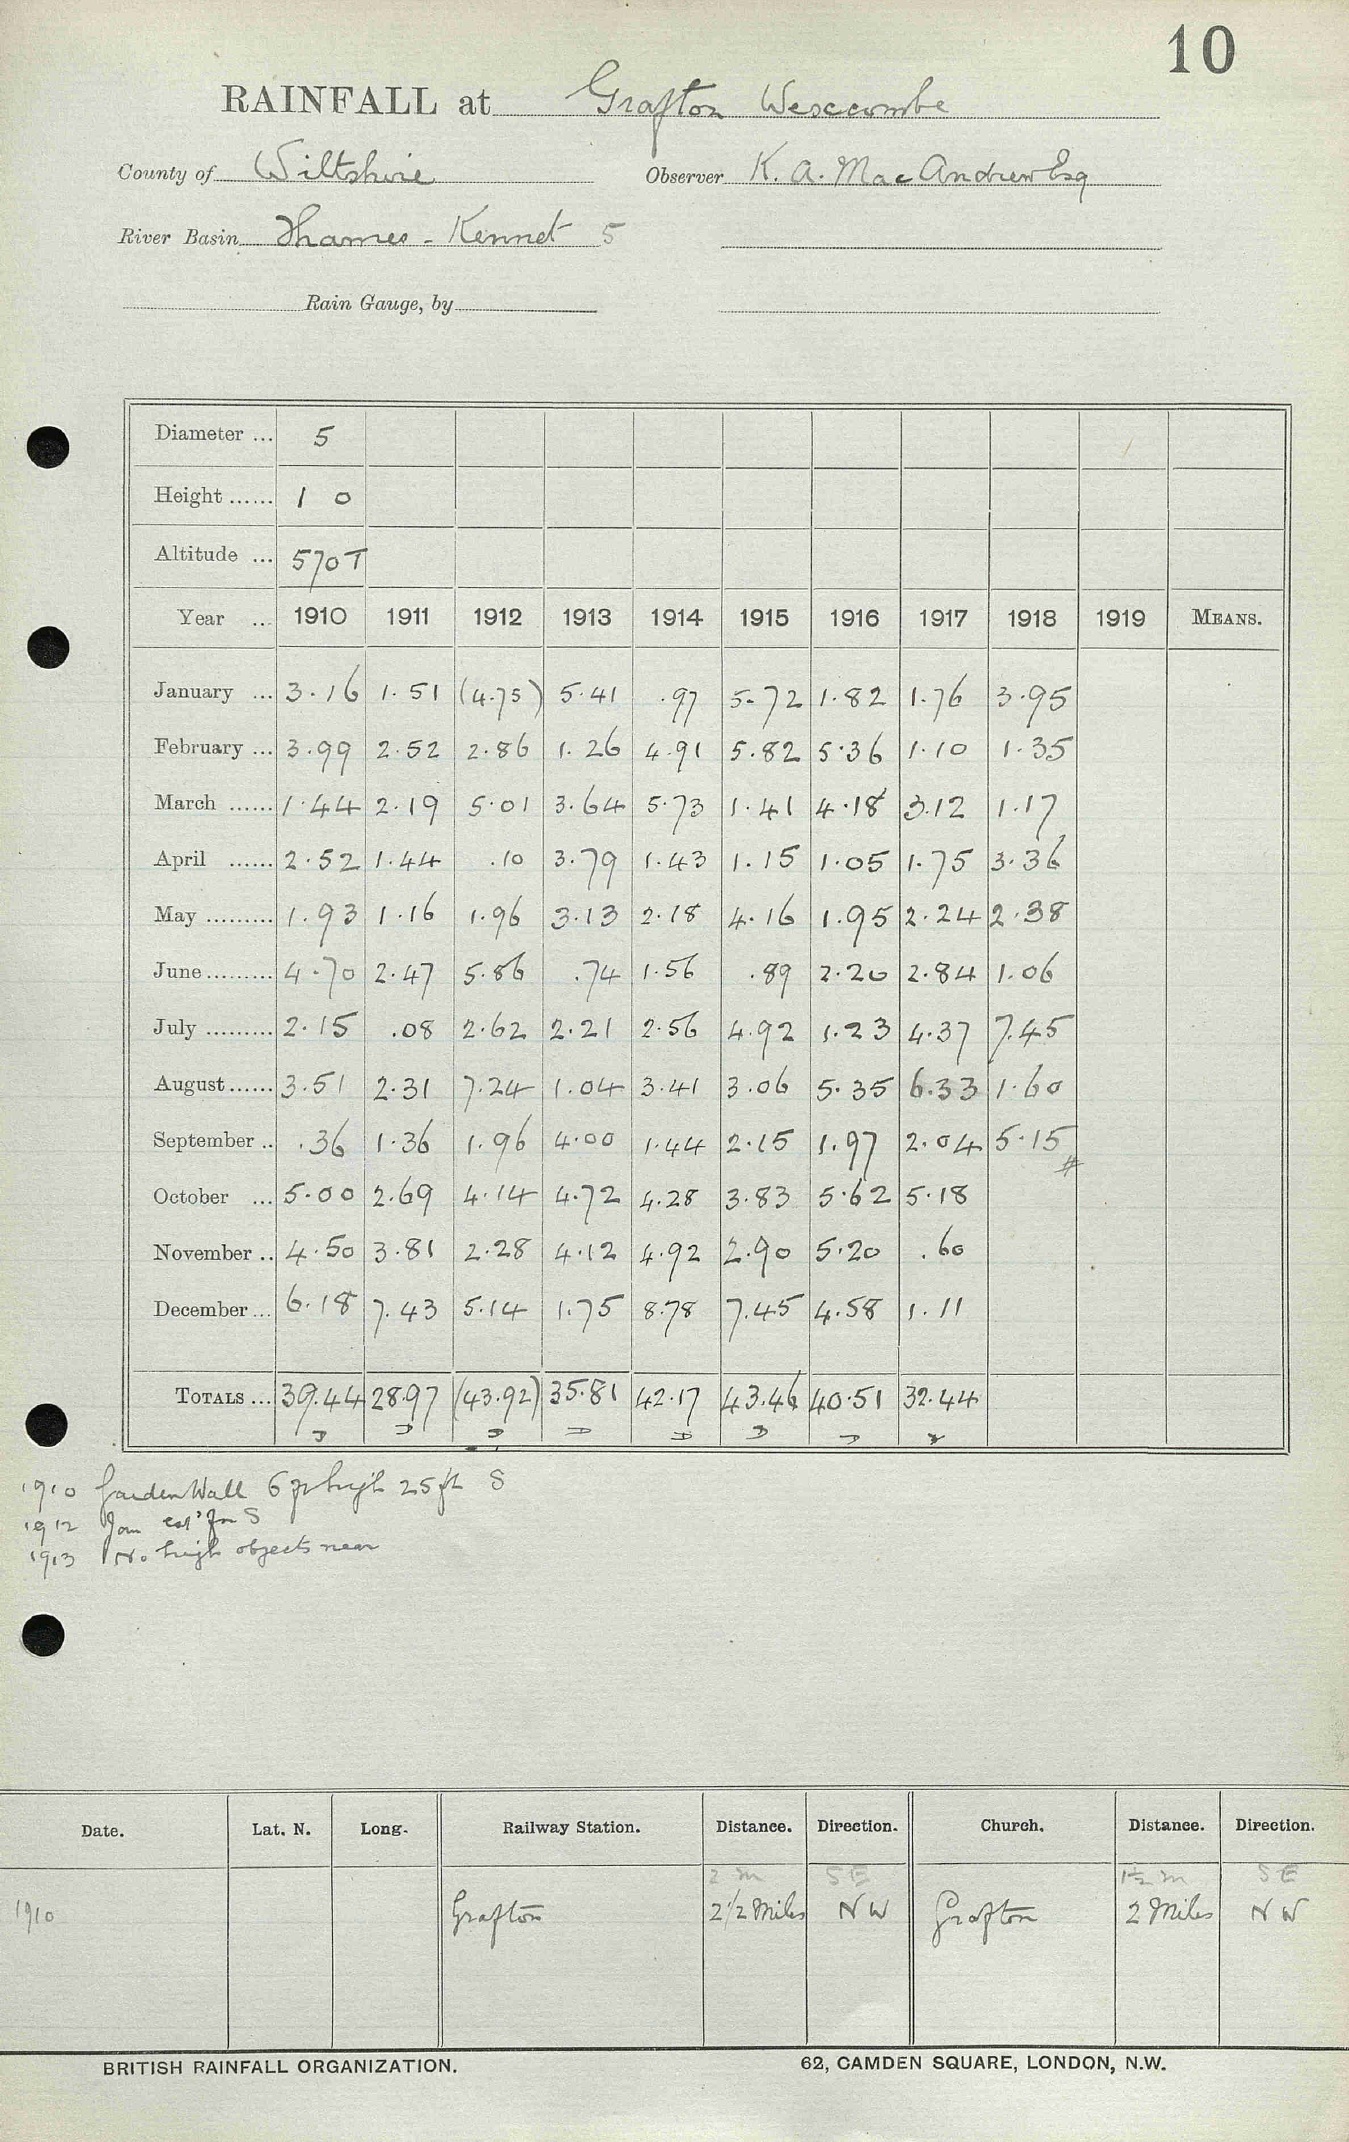 10
RAINFALL at Grafton Wexcombe
County of Wiltshire Observer K. A. MacAndrew Esq
River Basin Thames - Kennet 5
Rain Gauge, by
Diameter ... 5
Height ...... 1 0
Altitude ... 570 T
Year ... 1910 1911 1912 1913 1914 1915 1916 1917 1918 1919 MEANS.
January ... 3.16 1.51 (4.75) 5.41 .97 5.72 1.82 1.76 3.95
February ... 3.99 2.52 2.86 1.26 4.91 5.82 5.36 1.10 1.35
March ...... 1.44 2.19 5.01 3.64 5.73 1.41 4.18 3.12 1.17
April ...... 2.52 1.44 .10 3.79 1.43 1.15 1.05 1.75 3.36
May ......... 1.93 1.16 1.96 3.13 2.18 4.16 1.95 2.24 2.38
June ......... 4.70 2.47 5.86 .74 1.56 .89 2.20 2.84 1.06
July ......... 2.15 .08 2.62 2.21 2.56 4.92 1.23 4.37 7.45
August ...... 3.51 2.31 7.24 1.04 3.41 3.06 5.35 6.33 1.60
September .. .36 1.36 1.96 4.00 1.44 2.15 1.97 2.04 5.15 #
October ... 5.00 2.69 4.14 4.72 4.28 3.83 5.62 5.18
November .. 4.50 3.81 2.28 4.12 4.92 2.90 5.20 .60
December ... 6.18 7.43 5.14 1.75 8.78 7.45 4.58 1.11
TOTALS ... 39.44 28.97 (43.92) 35.81 42.17 43.46 40.51 32.44
1910 Garden Wall 6 ft high 25 ft S
1912 Jan est' fm S
1913 No high objects near
Date. Lat. N. Long. Railway Station. Distance. Direction. Church. Distance. Direction.
2 m SE 1½ m SE
1910 Grafton 2½ Miles NW Grafton 2 Miles NW
BRITISH RAINFALL ORGANIZATION. 62, CAMDEN SQUARE, LONDON, N.W.